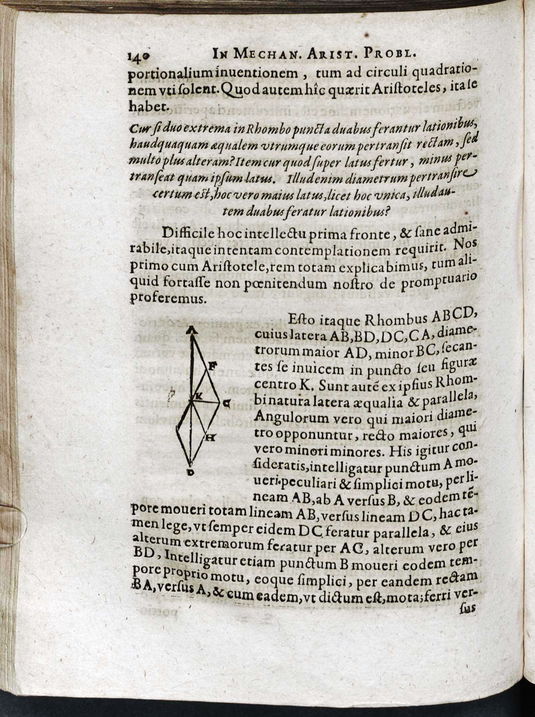 140 IN MECHAN. ARIST. PROBL.
portionalium inuentionem, tum ad circuli quadratio-
nem vti solent. Quod autem hîc quærit Aristoteles, ita se
habet.
Cur si duo extrema in Rhombo puncta duabus ferantur lationibus,
haudquaquam æqualem vtrumque eorum pertransit rectam, sed
multo plus alteram? Item cur quod super latus fertur, minus per-
transeat quam ipsum latus. Illud enim diametrum pertransire
certum est, hoc vero maius latus, licet hoc vnica, illud au-
tem duabus feratur lationibus?
Difficile hoc intellectu prima fronte, & sane admi-
rabile, itaque intentam contemplationem requirit. Nos
primo cum Aristotele, rem totam explicabimus, tum ali-
quid fortasse non pœnitendum nostro de promptuario
proferemus.
Esto itaque Rhombus ABCD,
cuius latera AB, BD, DC, CA, diame-
trorum maior AD, minor BC, secan-
tes se inuicem in puncto seu figuræ
centro K. Sunt autē ex ipsius Rhom-
bi natura latera æqualia & parallela,
Angulorum vero qui maiori diame-
tro opponuntur, recto maiores, qui
vero minori minores. His igitur con-
sideratis, intelligatur punctum A mo-
ueri peculiari & simplici motu, per li-
neam AB, ab A versus B, & eodem tē-
A
F
K
C
H
D
pore moueri totam lineam AB, versus lineam DC, hac ta-
men lege, vt semper eidem DC feratur parallela, & eius
alterum extremorum feratur per AC, alterum vero per
BD, Intelligatur etiam punctum B moueri eodem tem-
pore proprio motu, eoque simplici, per eandem rectam
BA, versus A, & cum eadem, vt dictum est, mota; ferri ver-
sus